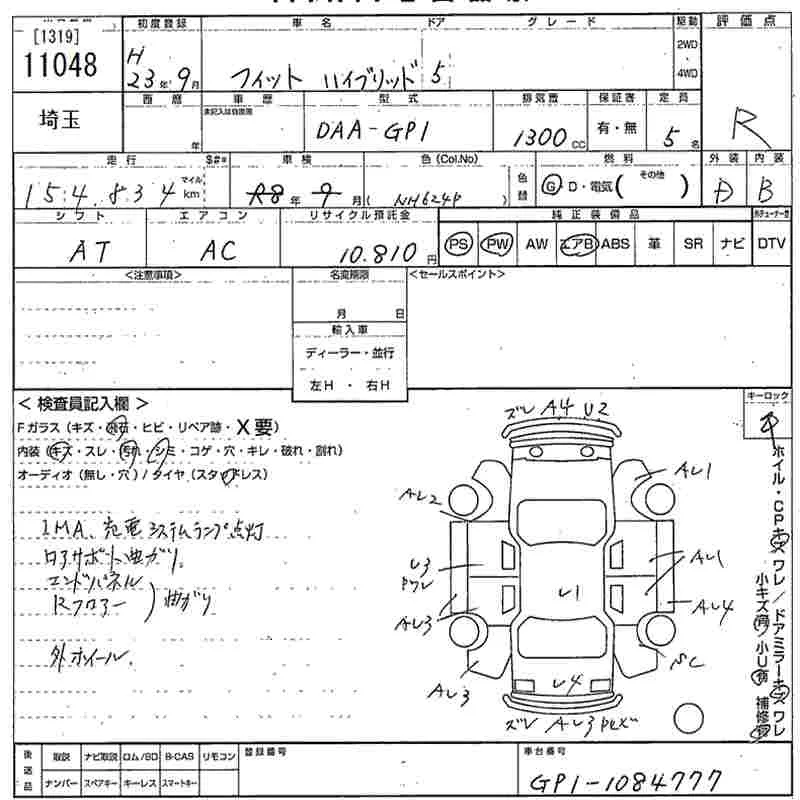 [1319]
11048
初度登録 車名 ドア グレード 駆動 評価点
H 23年 9月 フィット ハイブリッド 5 2WD
4WD
R
埼玉
西暦 車歴 型式 排気量 保証書 定員
年 未記入は自家用 DAA-GP1 1300 CC 有・無 5名
走行 車検 色(Col.No) 燃料 外装 内装
154,834 マイル km R8年 9月 ( NH624P ) 色替 G D・電気( その他 ) D B
シフト エアコン リサイクル預託金 純正装備品
AT AC 10.810円 PS PW AW エアB ABS 革 SR ナビ DTV
<注意事項> 名変期限 <セールスポイント>
月 日
輸入車
ディーラー・並行
左H ・ 右H
< 検査員記入欄 > キーロック
Fガラス(キズ・飛石・ヒビ・リペア跡・X要)
内装(キズ・スレ・汚れ・シミ・コゲ・穴・キレ・破れ・割れ)
オーディオ(無し・穴)/タイヤ(スタッドレス)
IMA、充電システムランプ点灯
ロアサポート曲がり、
エンドパネル
Rフロアー )曲がり
外ホイール、
ズレ A4 U2
AU1
AU2
U3
AU1
U1
AU3
AU4
AU3
U4
ズレ AU3
ホイル・CPキズワレ/ドアミラーキズワレ
小キズ有/小U有 補修有
後送品 取説 ナビ取説 ロム/BD B-CAS リモコン 登録番号 車台番号
ナンバー スペアキー キーレス スマートキー GP1-1084777